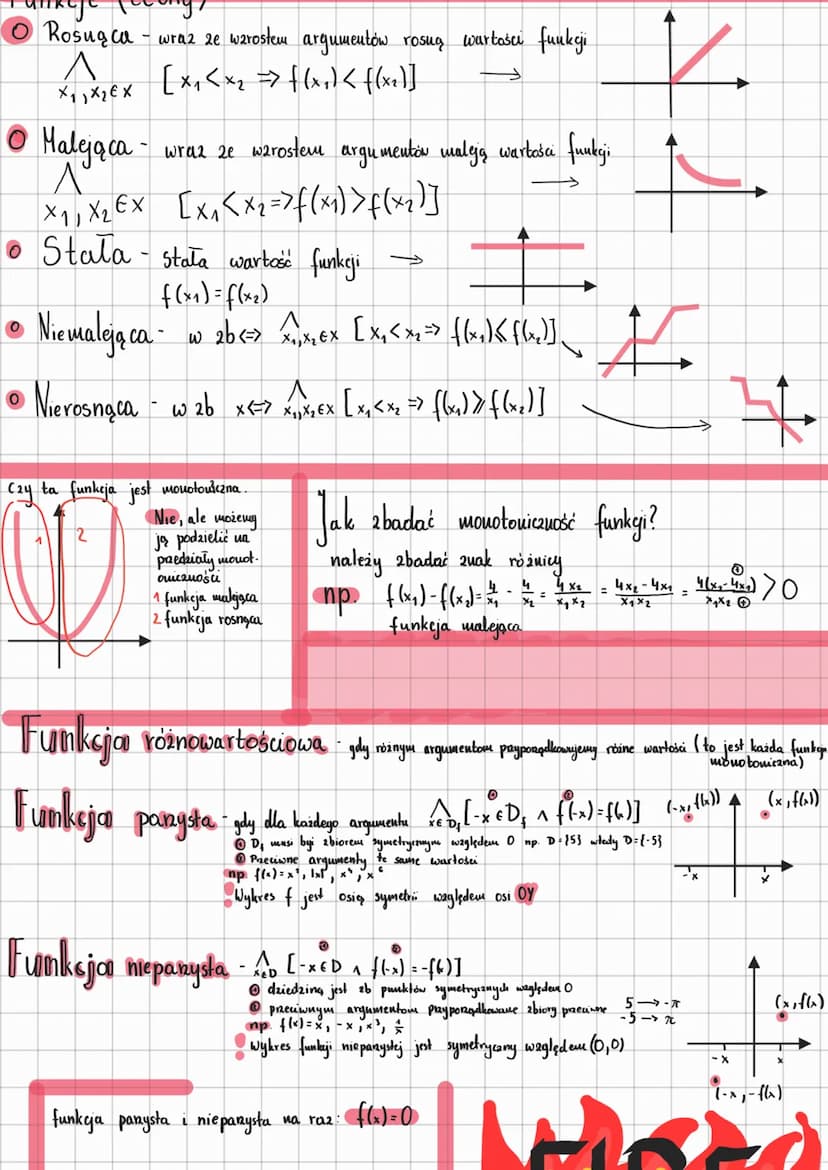 Rosnąca - wraz ze wzrostem argumentów rosną wartości funkcji
⋀ x₁,x₂∈X [x₁<x₂ ⇒ f(x₁)<f(x₂)] →
Malejąca - wraz ze wzrostem argumentów maleją wartości funkcji
⋀ x₁,x₂∈X [x₁<x₂ => f(x₁)>f(x₂)] →
Stała - stała wartość funkcji →
f(x₁)=f(x₂)
Niemalejąca - w zb <=> ⋀ x₁,x₂∈X [x₁<x₂ => f(x₁)≤f(x₂)]
Nierosnąca - w zb x<=> ⋀ x₁,x₂∈X [x₁<x₂ => f(x₁)≥f(x₂)]
Czy ta funkcja jest monotoniczna.
1 2
Nie, ale możemy
ją podzielić na
przedziały monot-
oniczności
1 funkcja malejąca
2 funkcja rosnąca
Jak zbadać monotoniczność funkcji?
należy zbadać znak różnicy
np. f(x₁)-f(x₂)= 4/x₁ - 4/x₂ = 4x₂/x₁x₂ = 4x₂-4x₁/x₁x₂ = 4(x₂-4x₁)/x₁x₂ >0
funkcja malejąca
Funkcja różnowartościowa - gdy różnym argumentom przyporządkowujemy różne wartości (to jest każda funkcja
monotoniczna)
Funkcja parzysta - gdy dla każdego argumentu ⋀ x∈Df [-x∈Df ∧ f(-x)=f(x)] (-x,f(x)) (x,f(x))
Df musi być zbiorem symetrycznym względem 0 np. D={5} wtedy D={-5}
Przeciwne argumenty te same wartości
np f(x)=x², |x|, x⁴, x⁶
-x x
! Wykres f jest osią symetrii względem osi OY
Funkcja nieparzysta - ⋀ x∈D [-x∈D ∧ f(-x)=-f(x)]
dziedziną jest zb punktów symetrycznych względem 0
przeciwnym argumentom przyporządkowane zbiory przeciwne 5 → -π
-5 → π
(x,f(x))
np. f(x)=x, -x, x³, 1/x
! Wykres funkcji nieparzystej jest symetryczny względem (0,0)
-x x
(-x,-f(x))
funkcja parzysta i nieparzysta na raz: f(x)=0